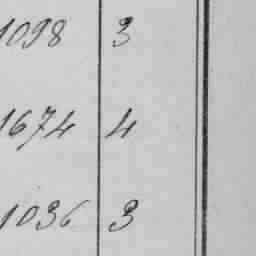 1098 3
1674 4
1036 3